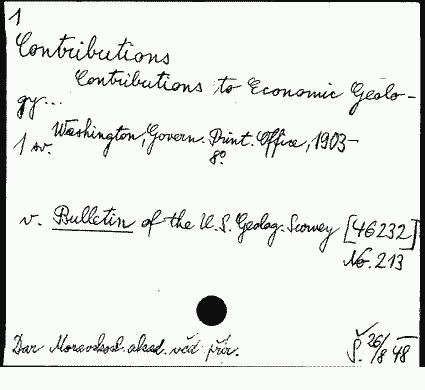 1
Contributions
Contributions to Economic Geolo-
gy...
1 sv. Washington, Govern. Print. Office, 1903-
8°
v. Bulletin of the U.S. Geolog. Survey [46232]
No. 213
Dar Moravskosl. akad. věd přír.
Š. 26/8 48